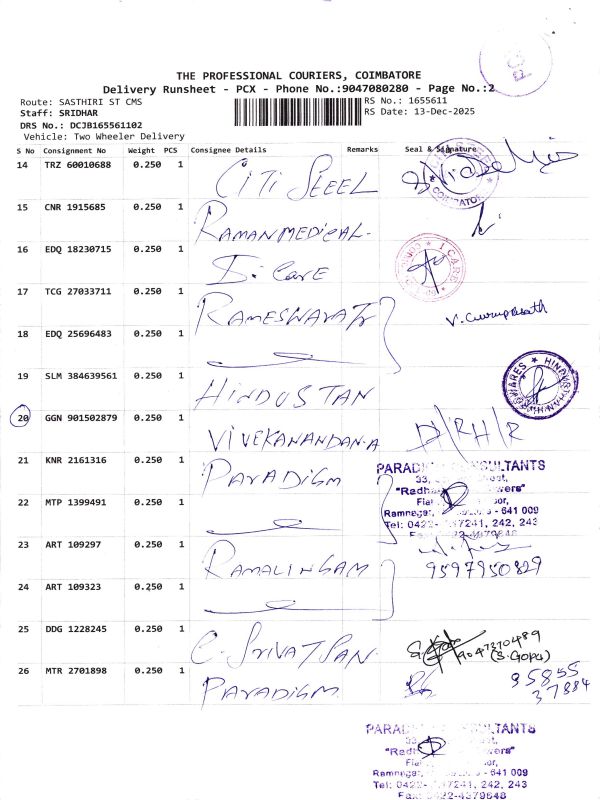 THE PROFESSIONAL COURIERS, COIMBATORE
Delivery Runsheet - PCX - Phone No.:9047080280 - Page No.:2
Route: SASTHIRI ST CMS
RS No.: 1655611
Staff: SRIDHAR
RS Date: 13-Dec-2025
DRS No.: DCJB165561102
Vehicle: Two Wheeler Delivery
S No Consignment No Weight PCS Consignee Details Remarks Seal & Signature
14 TRZ 60010688 0.250 1 CITI STEEL
COIMBATORE
15 CNR 1915685 0.250 1 RAMAN MEDICAL
16 EDQ 18230715 0.250 1 I. CARE
I CARE
17 TCG 27033711 0.250 1 RAMESWARAR
V. Guruprasath
18 EDQ 25696483 0.250 1
19 SLM 384639561 0.250 1 HINDUSTAN
HINDUSTHAN
20 GGN 901502879 0.250 1 VIVEKANANDAN.A D/R/H/R
21 KNR 2161316 0.250 1 PARADIGM
PARADIGM CONSULTANTS
33,
"Radha Towers"
22 MTP 1399491 0.250 1
Ramnagar, - 641 009
Tel: 0422- 242, 243
Fax: 0422-4379848
23 ART 109297 0.250 1 RAMALINGAM
9597950829
24 ART 109323 0.250 1
25 DDG 1228245 0.250 1 C. SRIVATSAN.
9047370489
(S. GOPU)
26 MTR 2701898 0.250 1 PARADIGM
95855
37884
PARADIGM CONSULTANTS
Ramnagar, - 641 009
Tel: 0422- 242, 243
Fax: 0422-4379848